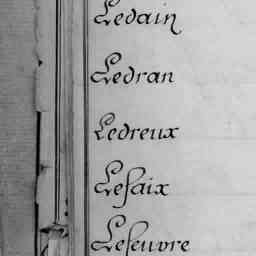 Ledain
Ledran
Ledreux
Lefaix
Lefeuvre